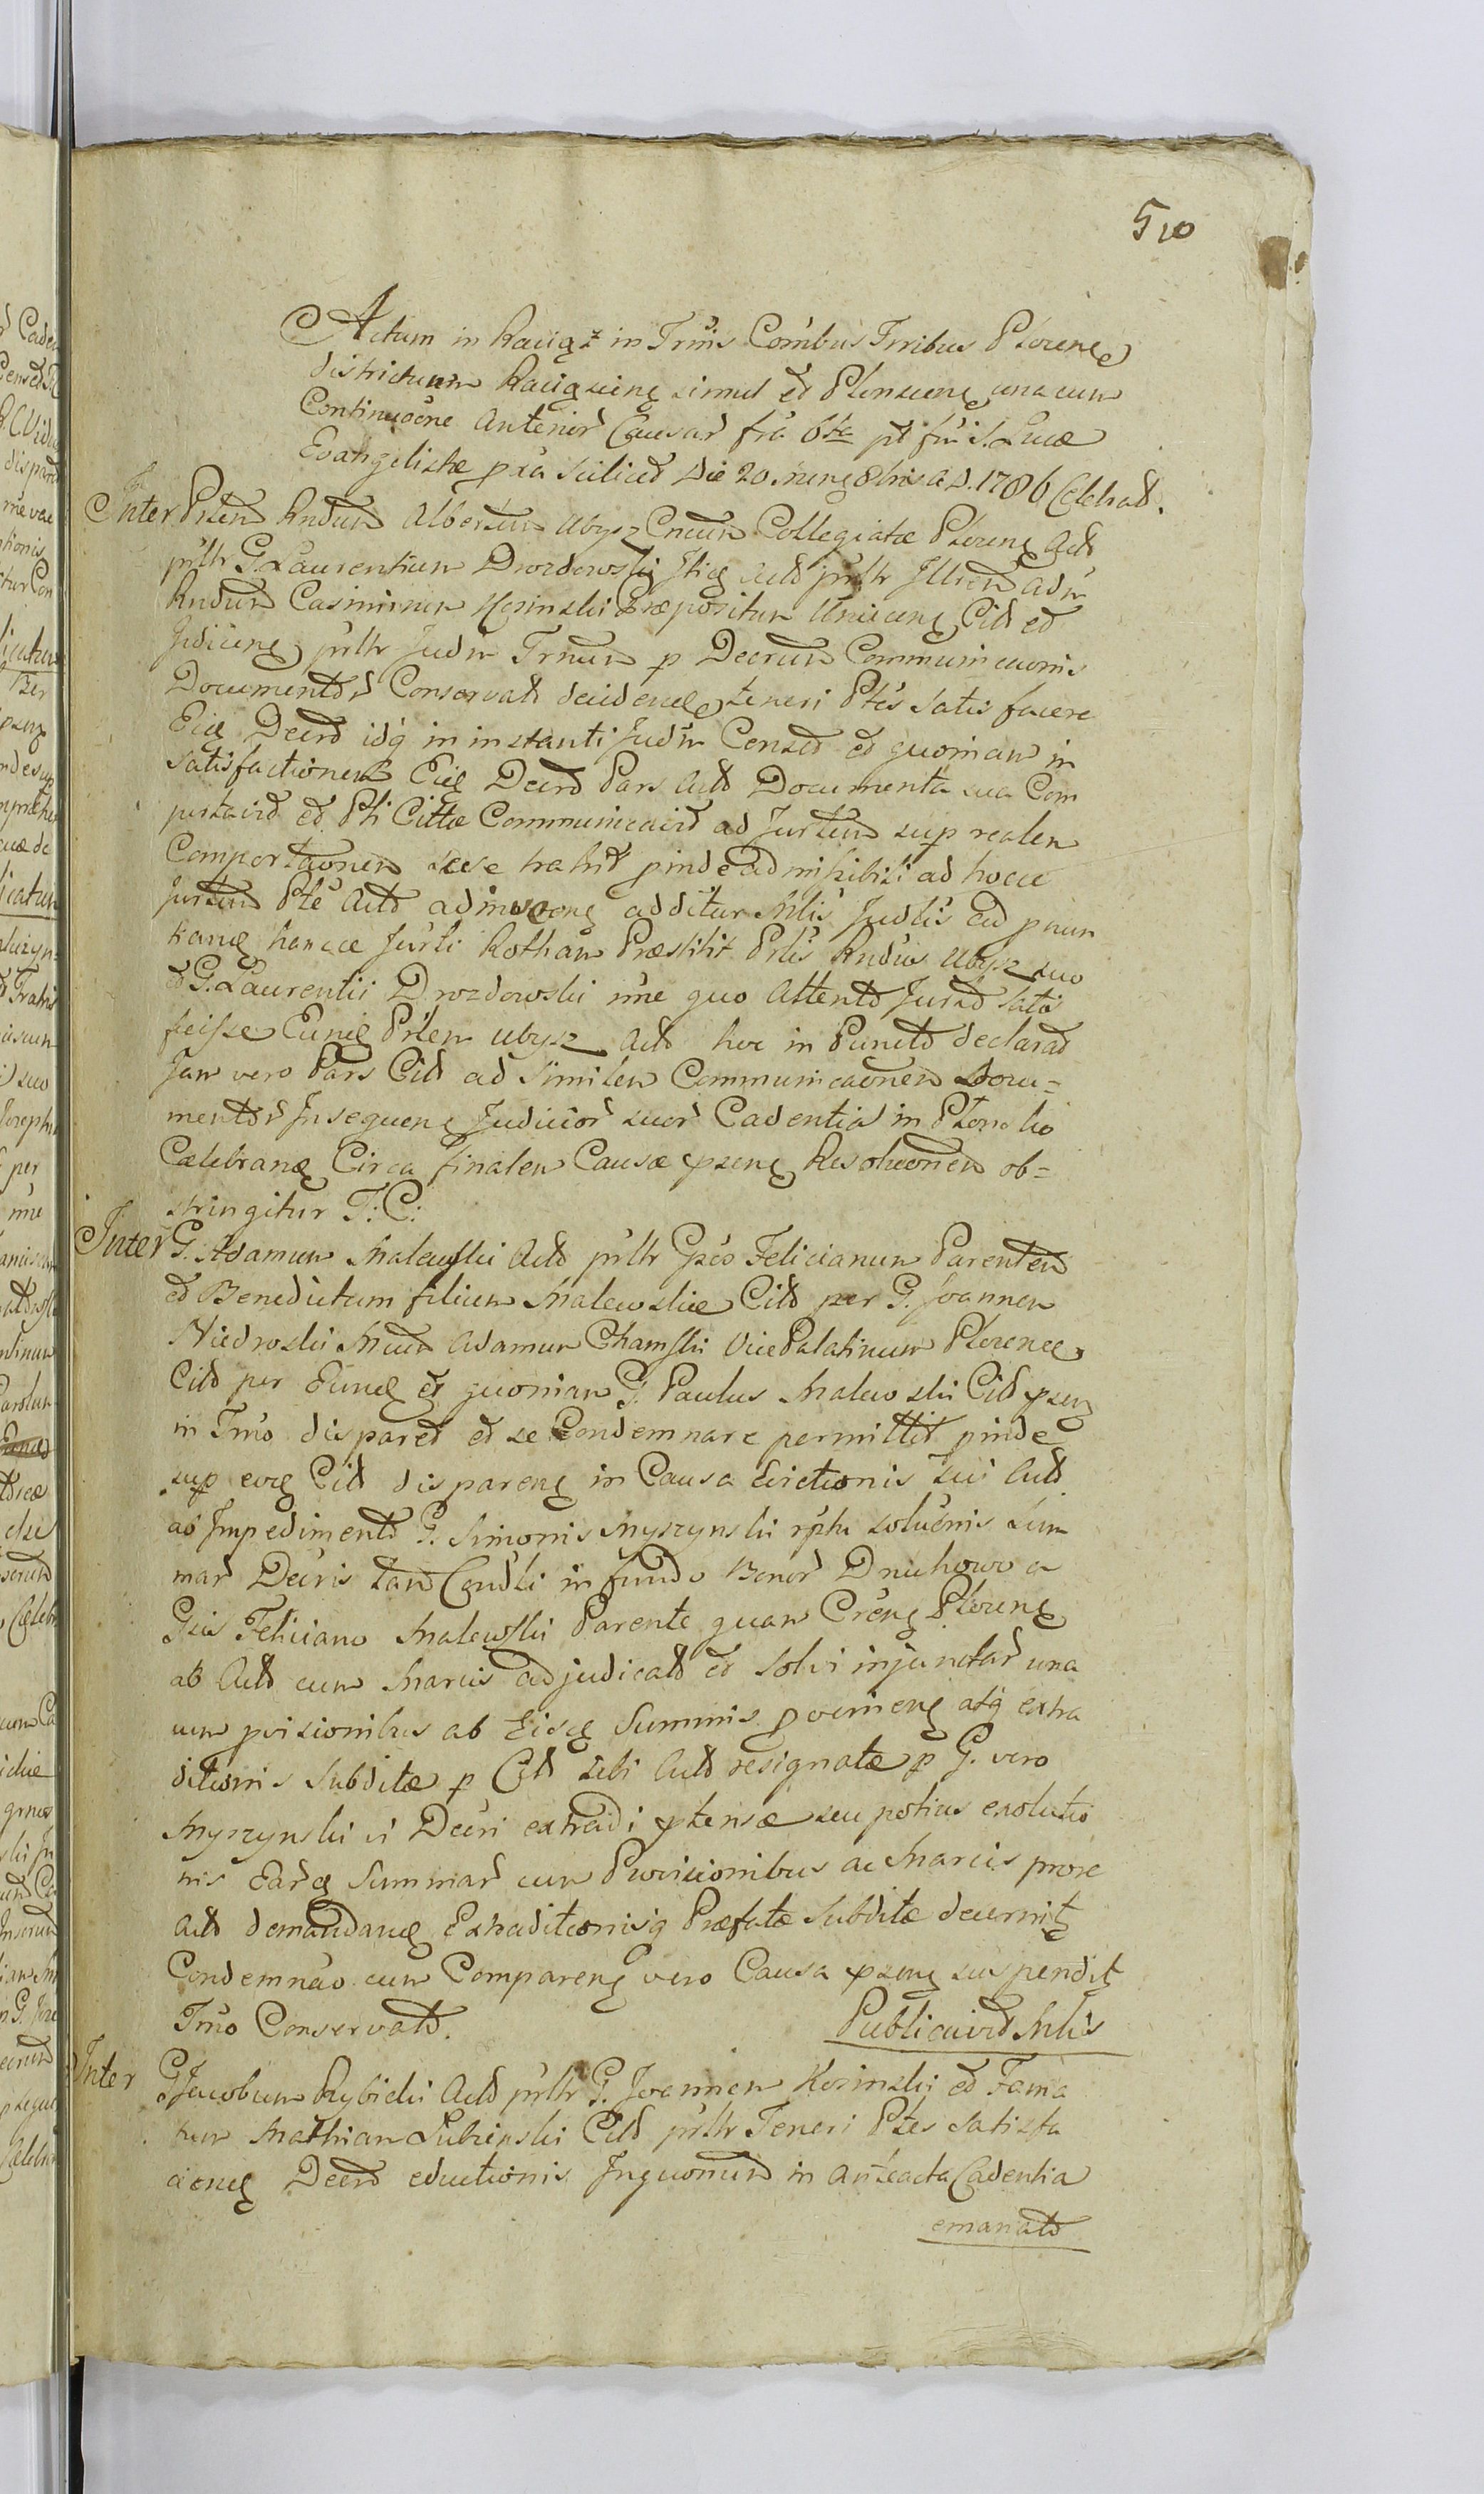 510
Actum in Raciąż in Trnis Combus Trribus Plocens
districtuum Raciąscens simul et Plonscens una cum
Continuaone Anterior Causar fra 6ta pt fm S. Lucæ
Evangelistæ pxa scilicet Die 20 mens 8bris a D. 1786 Celebrat.
Inter Prlem Rndum Albertum Ubysz Cncum Collegiatæ Plocens Act
prltr G. Laurentium Drozdowski Itiq Act prltr Illrem adm
Rndum Casimirum Kosinski Præpositum Uniecens Cit et
Judicens prltr Judm Trnum p Decrum Communicaonis
Documentor Conservatt decidens teneri Ptes satis facere
Eiq Decrt idq in instanti Judm Censet et quoniam in
satisfactionem Eiq Decrt Pars Act Documenta sua Com
portavit et Pti Cittæ Communicavit ad Jurtum sup realem
Comportaonem sese trahit pinde admihibili ad hocce
Jurtum Pte Act additur Mlis Judlis
hancce Jurti Rotham Præstitit Prlis Rndus Ubysz suo
et G. Laurentii Drozdowski nne quo Attento Jurat satis
fecisse Eunq Prlem Ubysz Act hoc in Puncto declarat
Jam vero Pars Cit ad similem Communicaonem Docu=
mentor Insequens Judicior suor Cadentia in Plonsko
Celebrans Circa finalem Causæ psens Resoluonem ob=
stringitur T: C:
Inter G. Adamum Malewski Act prltr Gsos Felicianum Parentem
et Benedictum filium Malewskie Cit per G. Joannem
Niedroski Mcum Adamum Chamski Vice Palatinum Plocens
Cit per Eunq et quoniam G. Paulus Malewski Cit psens
in Tmo disparet et se Condemnare permittit pinde
sup eoq Cit disparens in Causa Evictionis sui Act
ab Impedimento G. Simonis Myszynski rptu soluonis sum
mar Decris tam Condli in fundo Bonor Dnichowo a
Gso Feliciano Malewski Parente quam Crens Plocens
ab Act cum Marcis adjudicatt et solvi injunctar una
cum pvisionibus ab Eisq Summis pveniens atq extra
ditionis Subditæ p Cit sibi Act resignatæ p G. vero
Myszynski vi Decri extradi ptensæ seu potius exolutio
nis Earq Summar cum Pvisionibus ac Marcis prore
Act demandans Extraditionisq Præfatæ Subditæ decernit
Condemnao cum Comparens vero Causa psens suspendit
Tmo Conservatto. Publicavit Mlis
Inter G. Jacobum Rybicki Act prltr G. Joannem Kosinski et Fama
tum Mathiam Lubinski Cit prltr Teneri Ptes satisfa
cionq Decrt eductionis Inquonum in anteacta Cadentia
emanatt